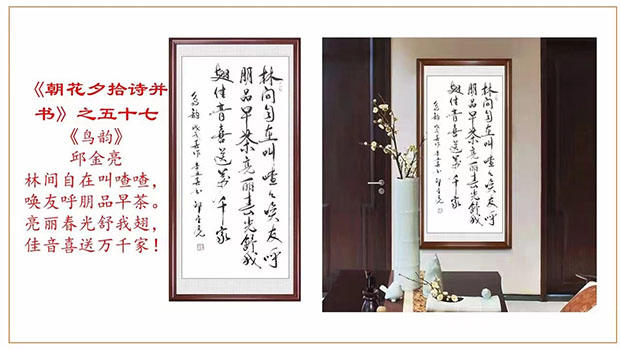 《朝花夕拾诗并
书》之五十七
《鸟韵》
邱金亮
林间自在叫喳喳，
唤友呼朋品早茶。
亮丽春光舒我翅，
佳音喜送万千家！
林间自在叫喳々唤友呼
朋品早茶亮丽春光舒我
翅佳音喜送萬千家
鸟韵 邱金亮
林间自在叫喳々唤友呼
朋品早茶亮丽春光舒我
翅佳音喜送萬千家
鸟韵 邱金亮